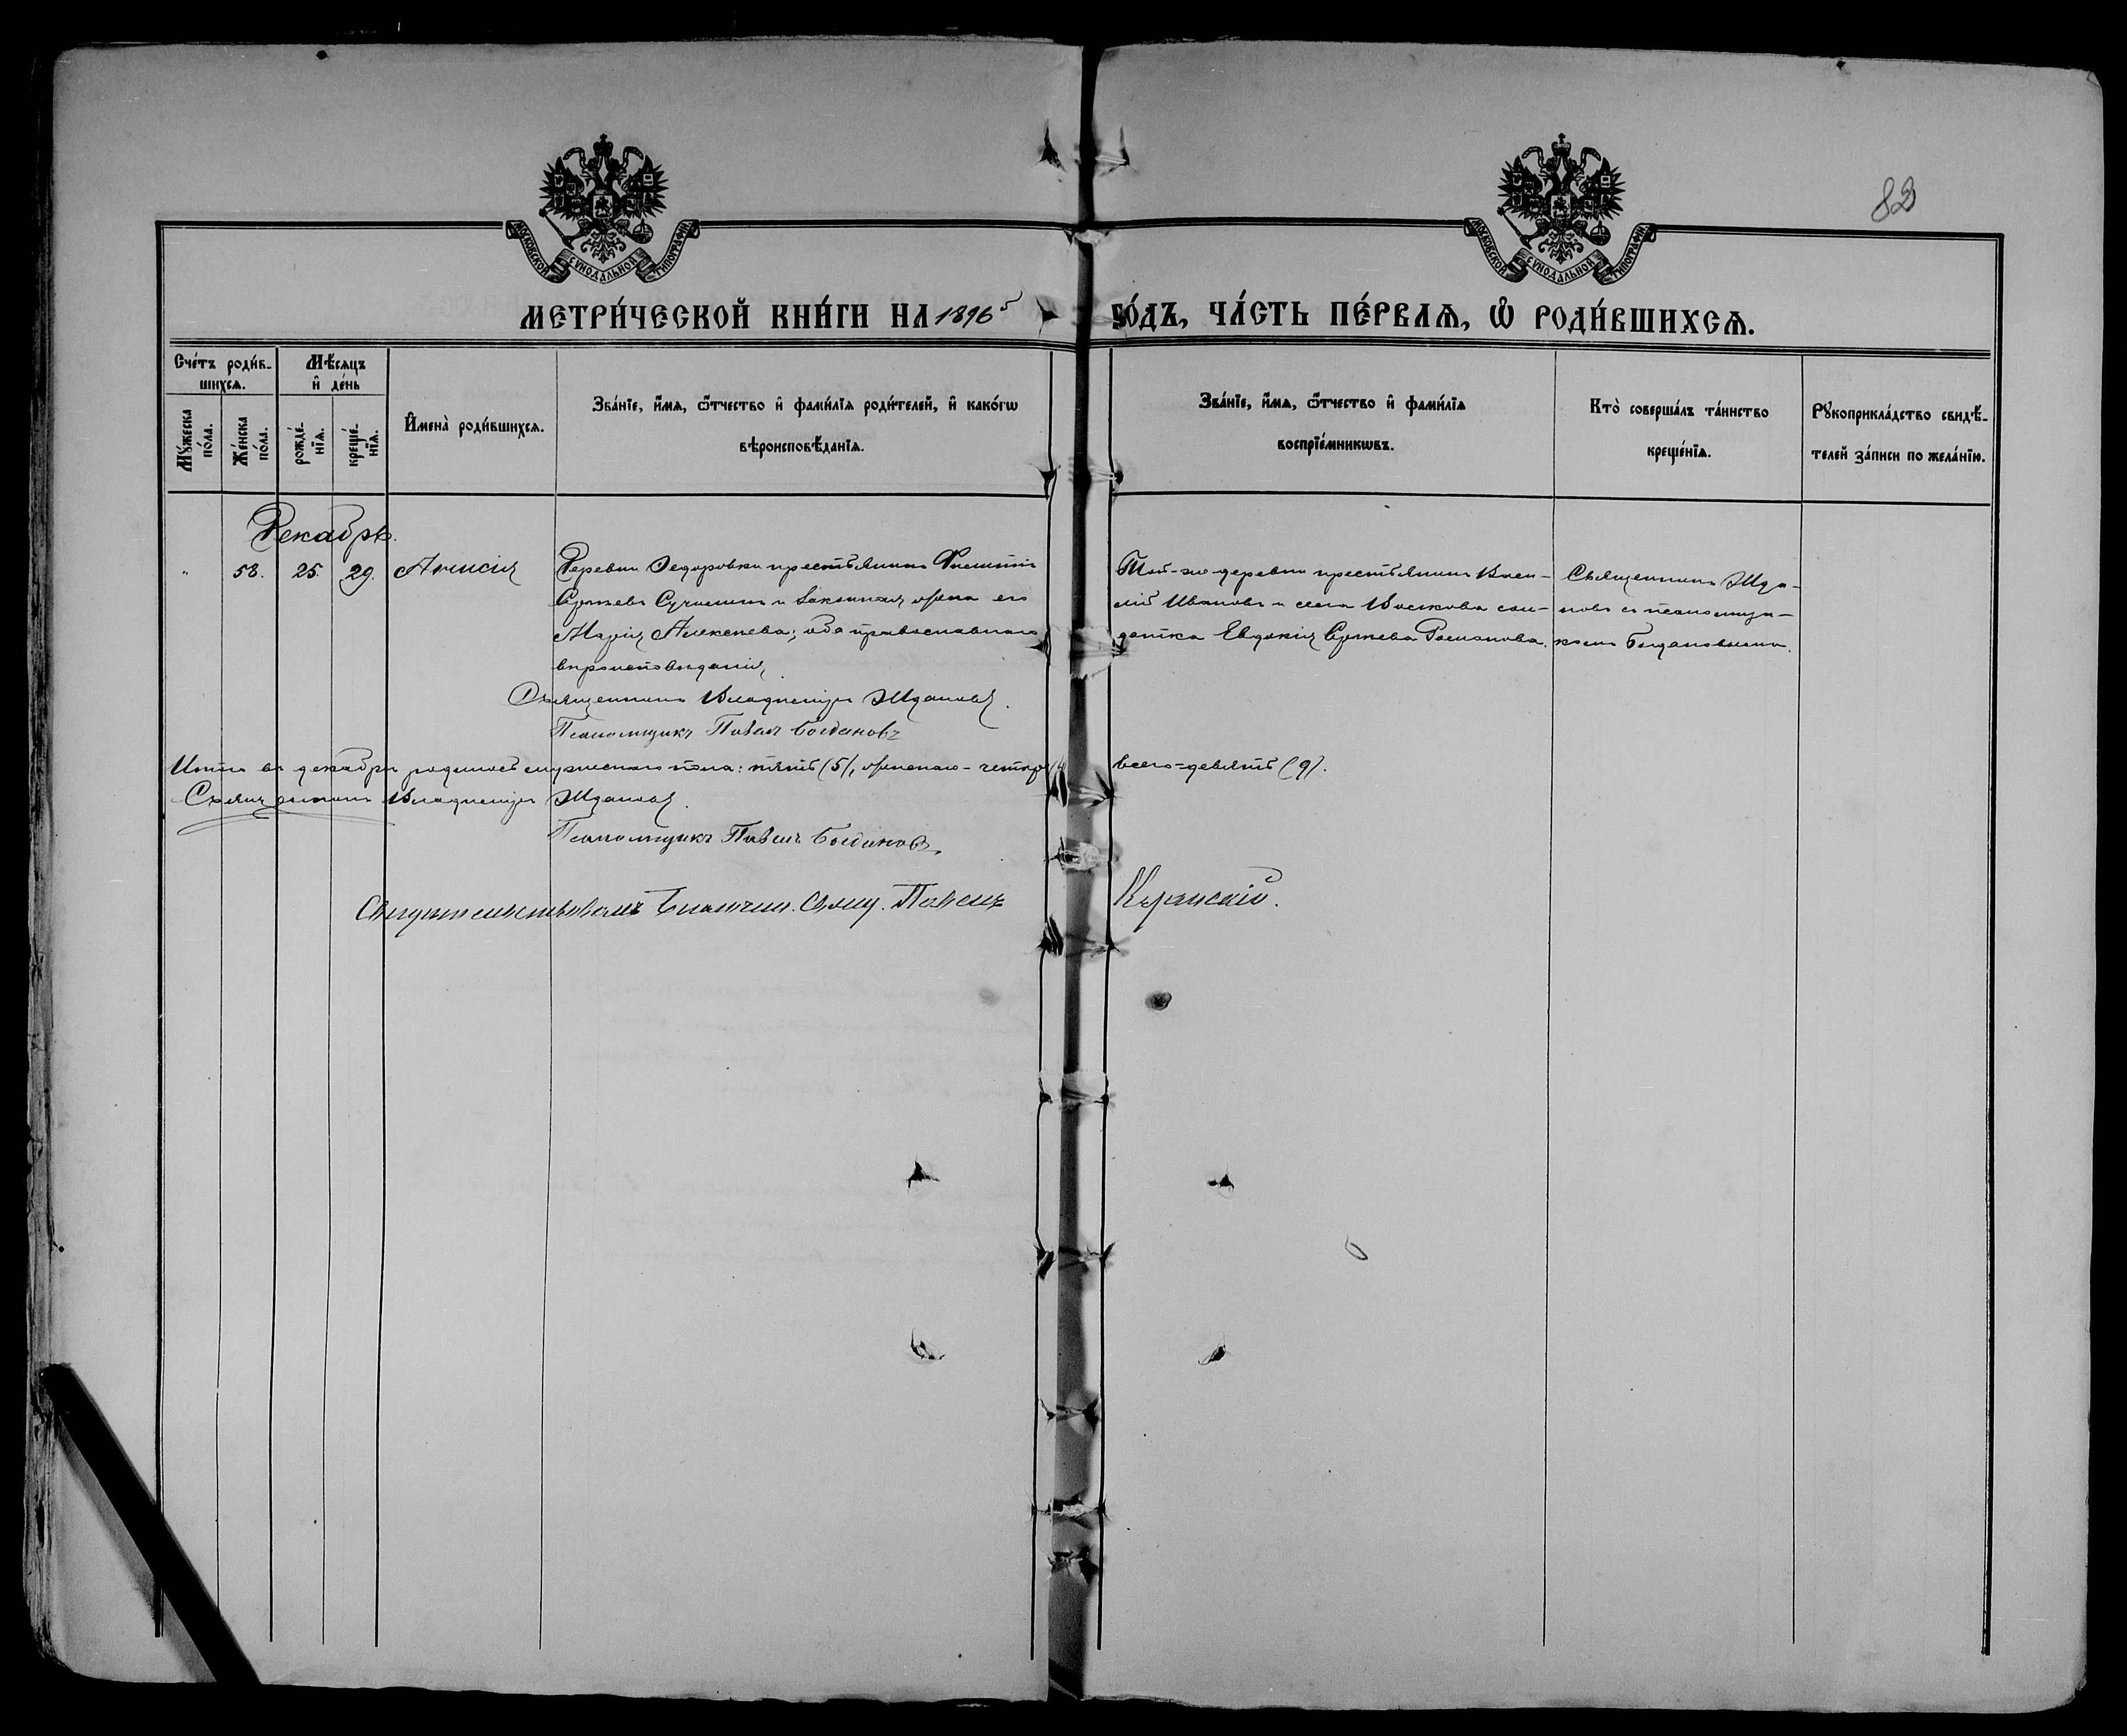 82
МОСКОВСКОЙ СѴНОДАЛЬНОЙ ТИПОГРАФІИ
МОСКОВСКОЙ СѴНОДАЛЬНОЙ ТИПОГРАФІИ
МЕТРИ́ЧЕСКОЙ КНИ́ГИ НА 1896 ГО́ДЪ, ЧА́СТЬ ПЕ́РВАѦ, Ѡ РОДИ́ВШИХСѦ.
Сче́тъ роди́в-
шихсѧ.
Мꙋ́жеска по́ла.
Же́нска по́ла.
Мѣ́сѧцъ
и҆ де́нь
рожде́-
нїѧ.
креще́-
нїѧ.
И҆мена̀ роди́вшихсѧ.
Зва́нїе, и҆́мѧ, ѻ҆́тчество и҆ фами́лїѧ роди́телей, и҆ како́гѡ
вѣроисповѣ́данїѧ.
Зва́нїе, и҆́мѧ, ѻ҆́тчество и҆ фами́лїѧ
воспрїе́мникѡвъ.
Кто̀ соверша́лъ та́инство
креще́нїѧ.
Рꙋкоприкла́дство свидѣ́-
телей за́писи по жела́нїю.
Декабрь.
" 58. 25. 29. Анисія
Деревни Ѳедоровки крестьянинъ Филиппъ
Сергѣевъ и законная жена его
Марія Алексѣева; оба православнаго
вѣроисповѣданія,
Той-же деревни крестьянинъ Васи-
лій Ивановъ и села сол-
датка Евдокія Сергѣева Романова.
Священникъ Жда-
новъ съ псаломщи-
комъ Богдановымъ.
Священникъ Владиміръ Ждановъ.
Псаломщикъ Павелъ Богдановъ
Итого въ декабрѣ родилось мужескаго пола: пять (5), женскаго - четыре (4) всего - девять (9).
Священникъ Владиміръ Ждановъ.
Псаломщикъ Павелъ Богдановъ,
Свидѣтельствовалъ Благочин. Свящ. Павелъ Казанскій.